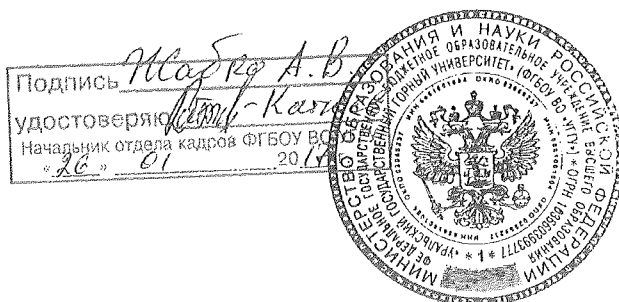 Подпись Жабко А.В.
удостоверяю
Начальник отдела кадров ФГБОУ ВО
«26» 01 20
МИНИСТЕРСТВО ОБРАЗОВАНИЯ И НАУКИ РОССИЙСКОЙ ФЕДЕРАЦИИ
ФЕДЕРАЛЬНОЕ ГОСУДАРСТВЕННОЕ БЮДЖЕТНОЕ ОБРАЗОВАТЕЛЬНОЕ УЧРЕЖДЕНИЕ ВЫСШЕГО ОБРАЗОВАНИЯ
«УРАЛЬСКИЙ ГОСУДАРСТВЕННЫЙ ГОРНЫЙ УНИВЕРСИТЕТ» (ФГБОУ ВО «УГГУ») * ОГРН 1036603993777
* 1 *